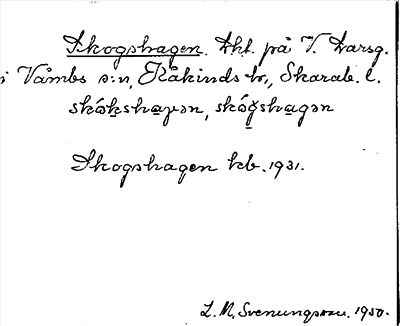 Skogshagen. Lht. på V. Karsg.
i Våmbs s:n, Kåkinds hd., Skarab. l.
skóḵshaγ̱ən, skóg̱shaγən
Skogshagen kb. 1931.
L. M. Svenungsson. 1950.